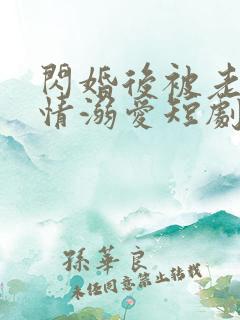 閃婚後被老
情溺愛短劇
孫華良
未任同意禁止转载